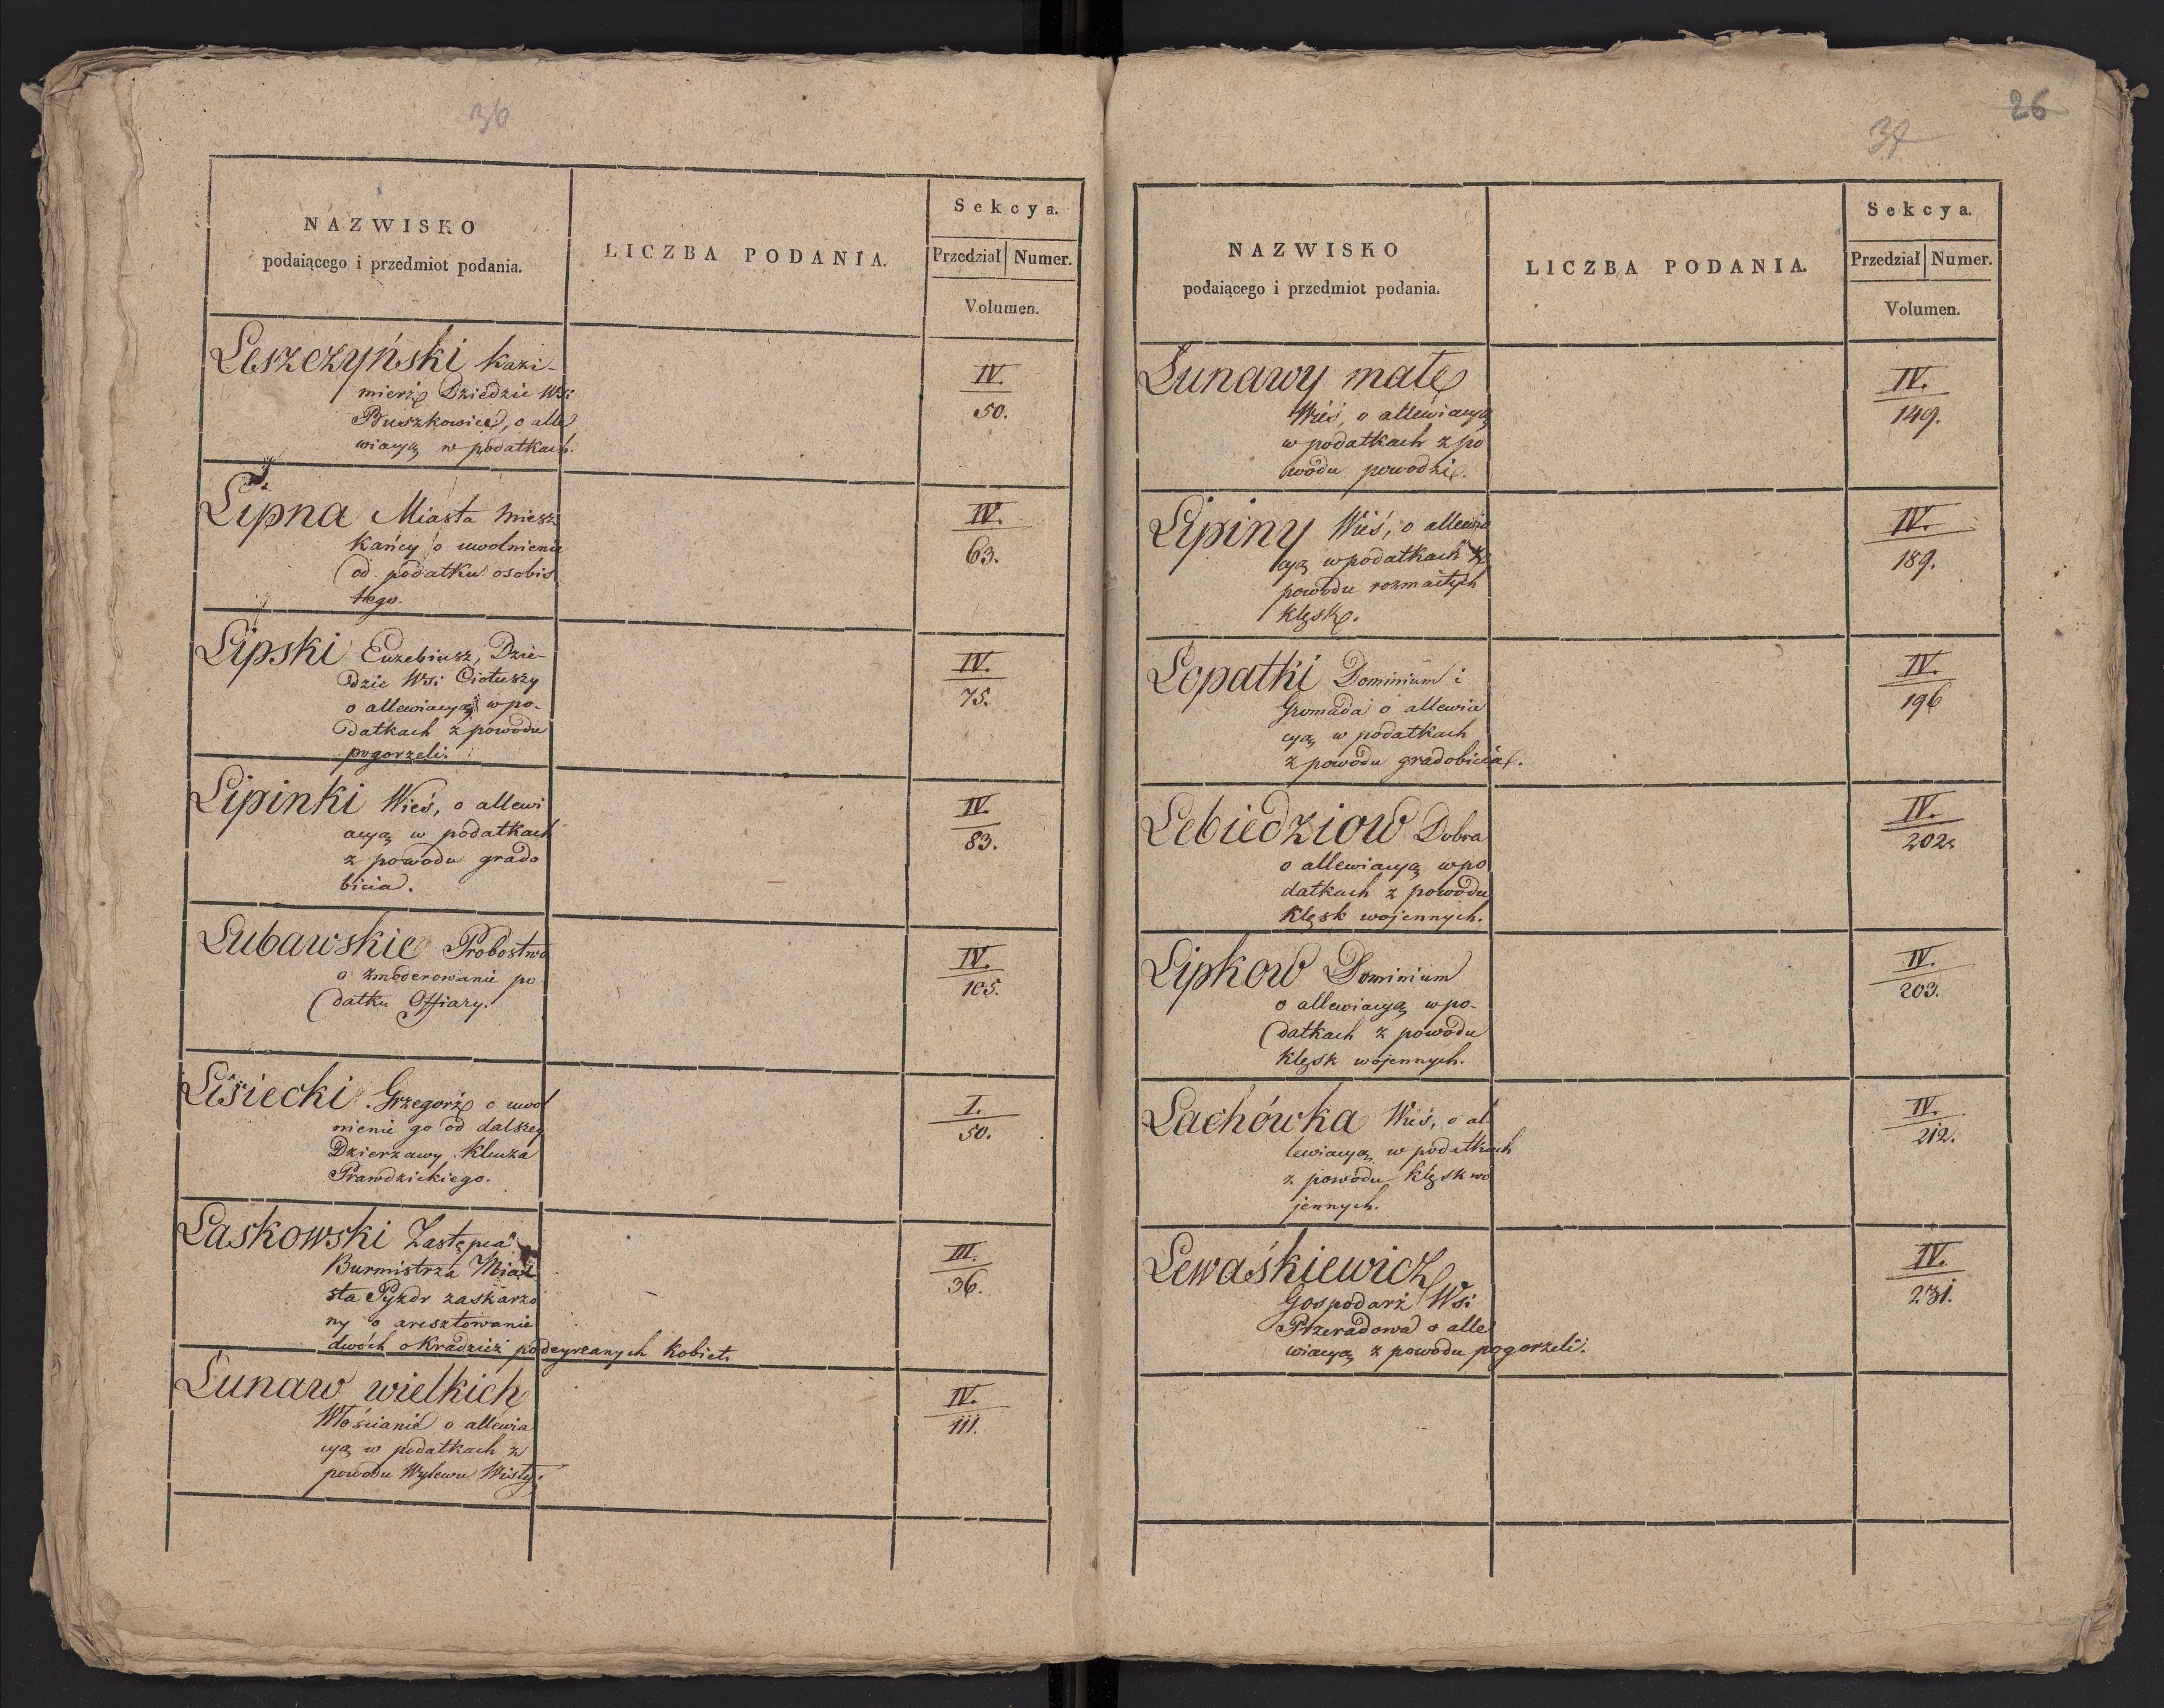 36
NAZWISKO
podaiącego i przedmiot podania.
LICZBA PODANIA.
Sekcya.
Przedział Numer.
Volumen.
Leszczyński Kazi-
mierz Dziedzic Wsi
Buszkowice, o alle
wiacyą w podatkach.
IV.
50.
Lipna Miasta Miesz
kańcy o uwolnienie
od podatku osobis
tego.
IV.
63.
Lipski Euzebiusz, Dzie-
dzic Wsi Ciotuszy
o allewiacyą w po-
datkach z powodu
pogorzeli.
IV.
75.
Lipinki Wieś, o allewi
acyą w podatkach
z powodu grado
bicia.
IV.
83.
Lubawskie Probostwo
o zmoderowanie po
datku Offiary.
IV.
105.
Lisiecki Grzegorz o uwol
nienie go od dalszey
Dzierzawy Klucza
Prawdzickiego.
I.
50.
Laskowski Zastępca
Burmistrza Mia
sta Pyzdr zaskarzo
ny o aresztowanie
dwóch o Kradzież podeyrzanych Kobiet.
III.
36.
Łunaw wielkich
Włościanie o allewia
cyą w podatkach z
powodu Wylewu Wisły.
IV.
111.
26
37
NAZWISKO
podaiącego i przedmiot podania.
LICZBA PODANIA.
Sekcya.
Przedział Numer.
Volumen.
Łunawy małe
Wieś, o allewiacyą
w podatkach z po
wodu powodzi.
IV.
149.
Lipiny Wieś, o allewia
cyą w podatkach z
powodu rozmaitych
klęsk.
IV.
189.
Łopatki Dominium i
Gromada o allewia
cyą w podatkach
z powodu gradobicia.
IV.
196
Lebiedziow Dobra
o allewiacyą w po
datkach z powodu
Klęsk wojennych.
IV.
202.
Lipkow Dominium
o allewiacyą w po-
datkach z powodu
Klęsk wojennych.
IV.
203.
Lachówka Wieś, o al
lewiacyą w podatkach
z powodu Klęsk wo
jennych.
IV.
212.
Lewaśkiewicz
Gospodarz Wsi
Przeradowa o alle
wiacyą z powodu pogorzeli.
IV.
231.